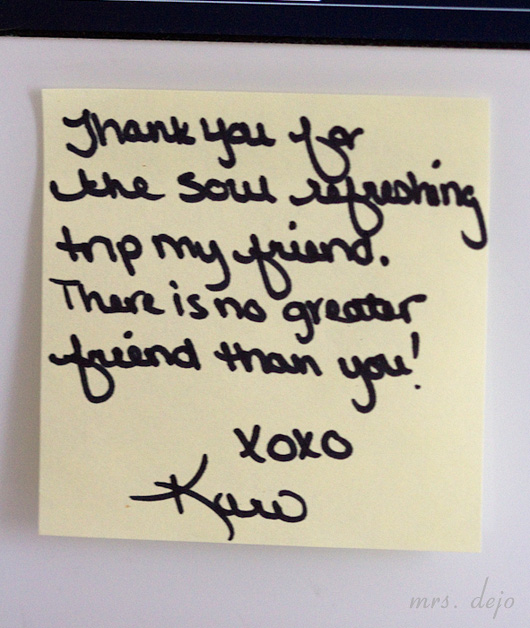 Thank you for
the soul refreshing
trip my friend.
There is no greater
friend than you!
xoxo
mrs. dejo